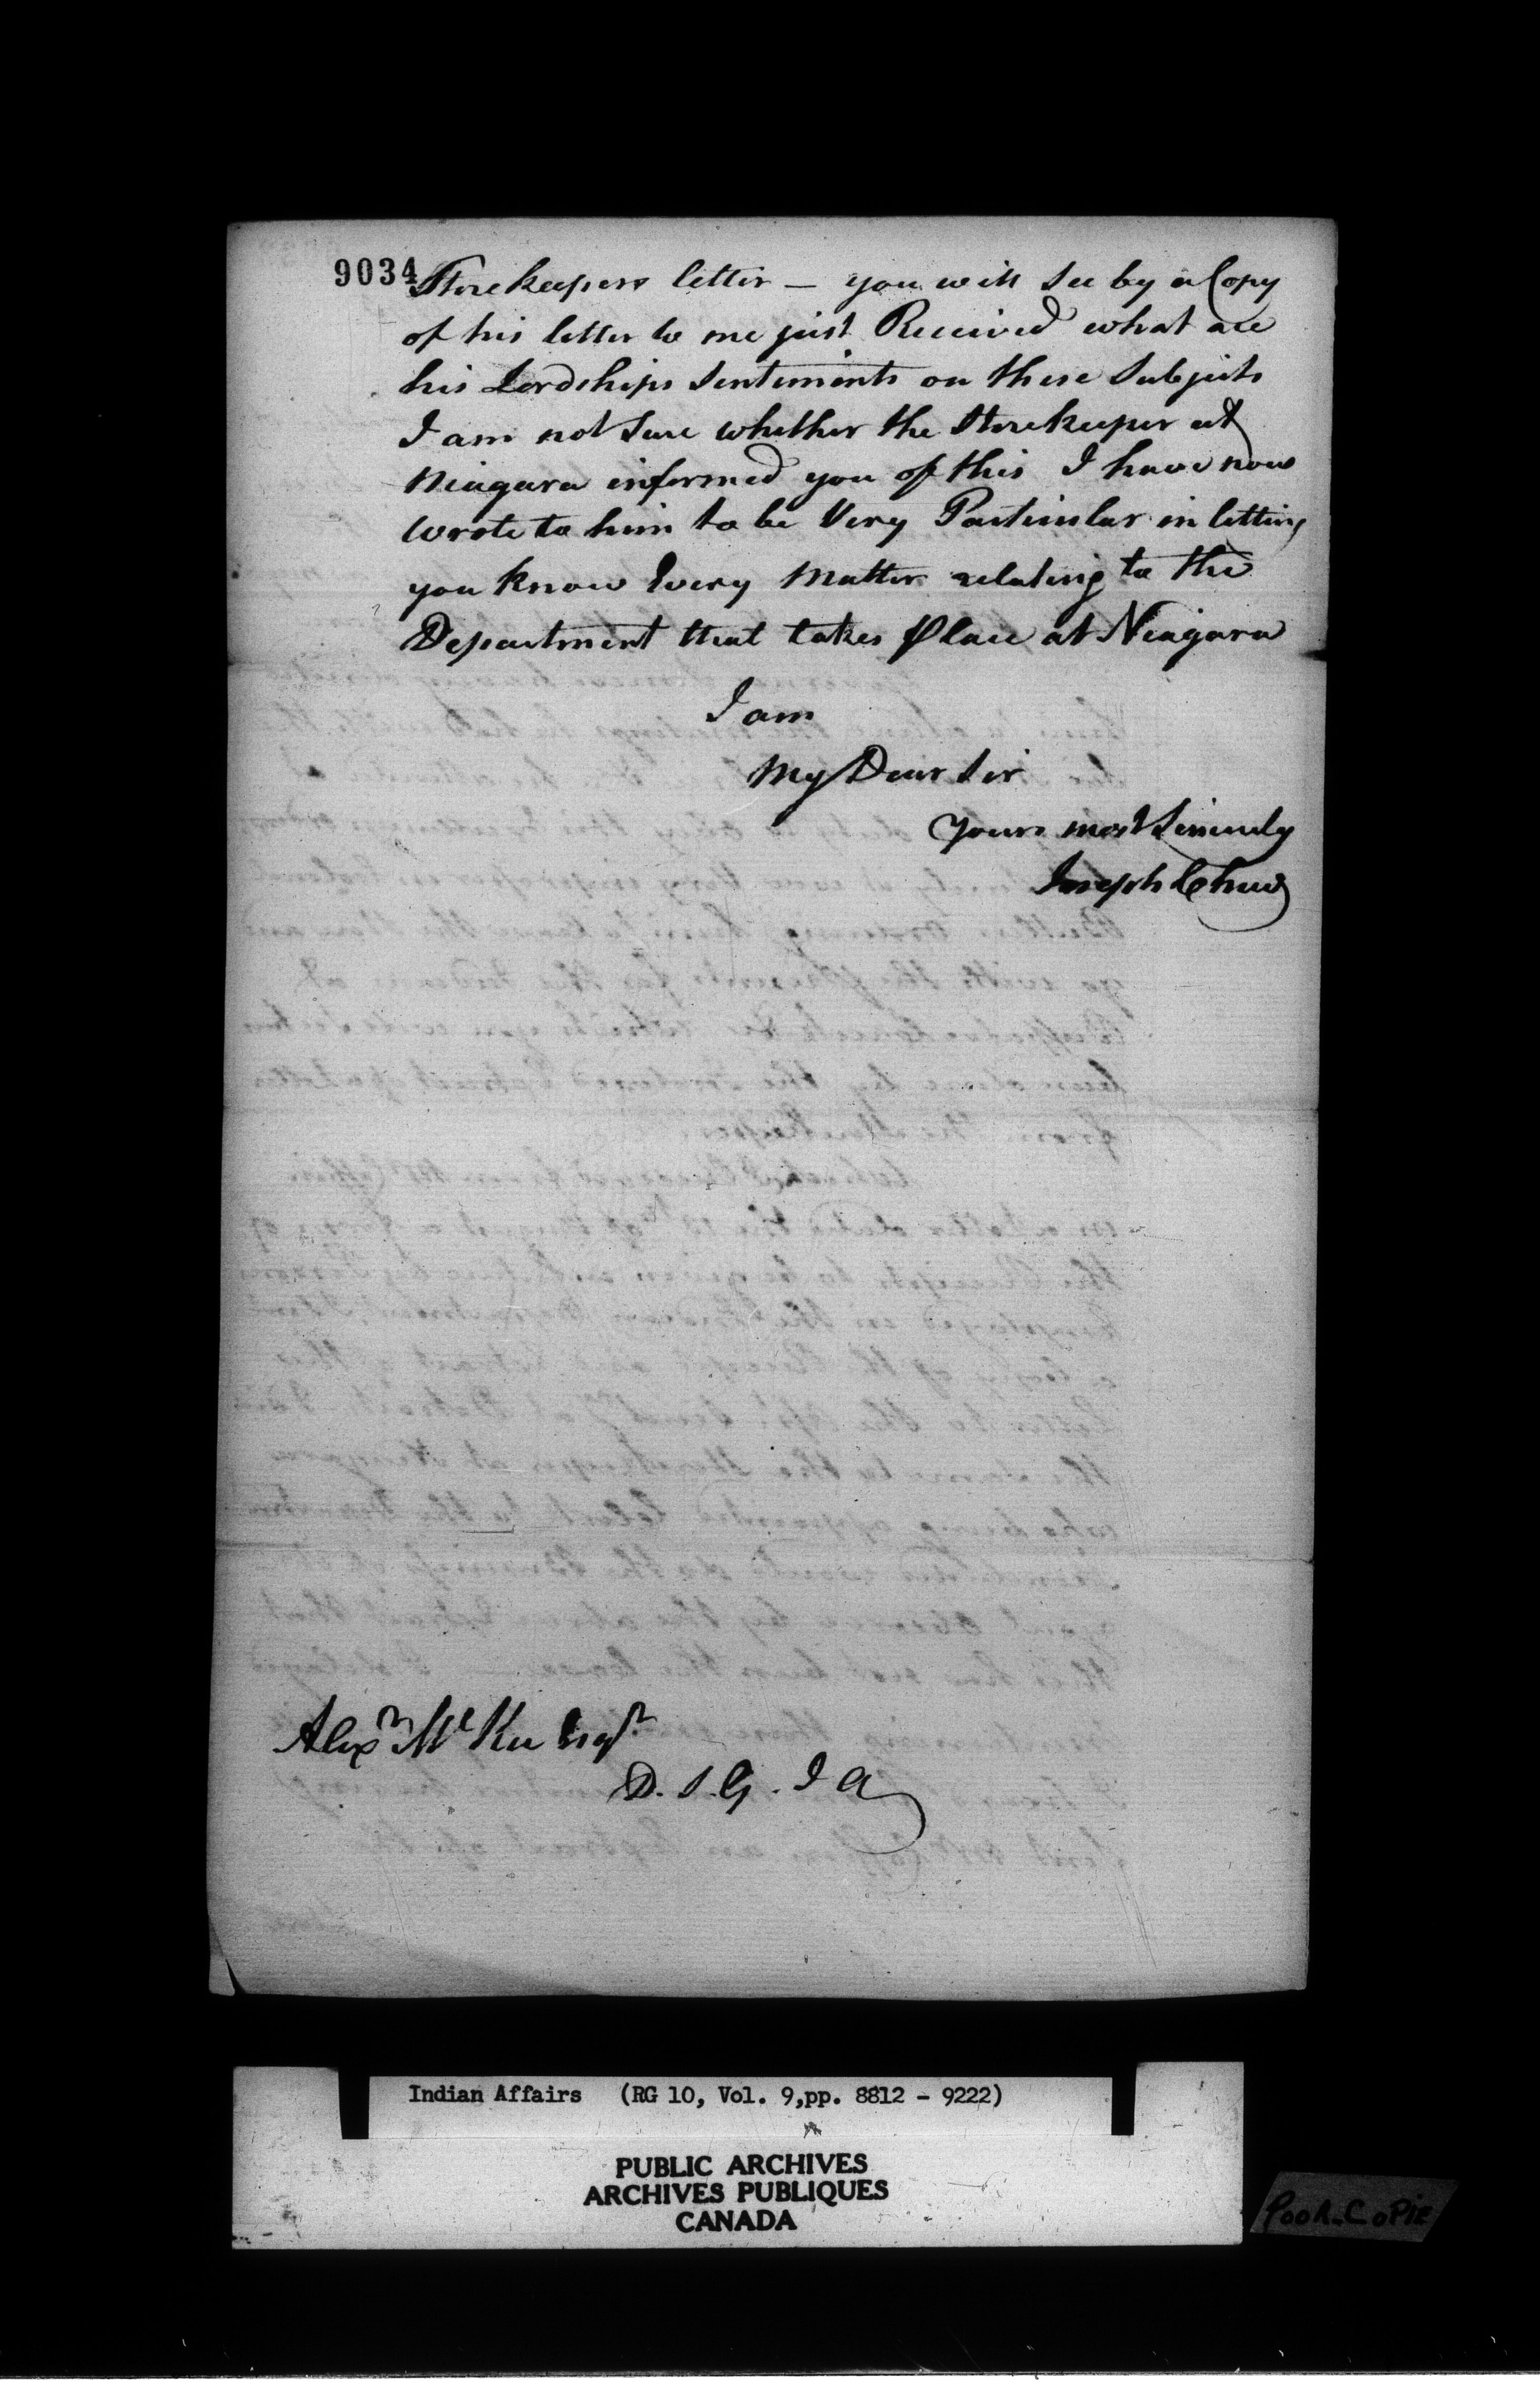 9034
Storekeepers letter — you will See by a Copy
of his letter to me just Received what are
his Lordships Sentiments on these Subjects
I am not Sure whether the Storekeeper at
Niagara informed you of this I have now
wrote to him to be Very Particular in letting
you know Every Matter relating to the
Department that takes Place at Niagara
I am
My Dear Sir
Yours most Sincerely
Joseph Chew
Alexr McKee Esqr
D. S. G. I A
Indian Affairs (RG 10, Vol. 9, pp. 8812 - 9222)
PUBLIC ARCHIVES
ARCHIVES PUBLIQUES
CANADA
POOR COPIE